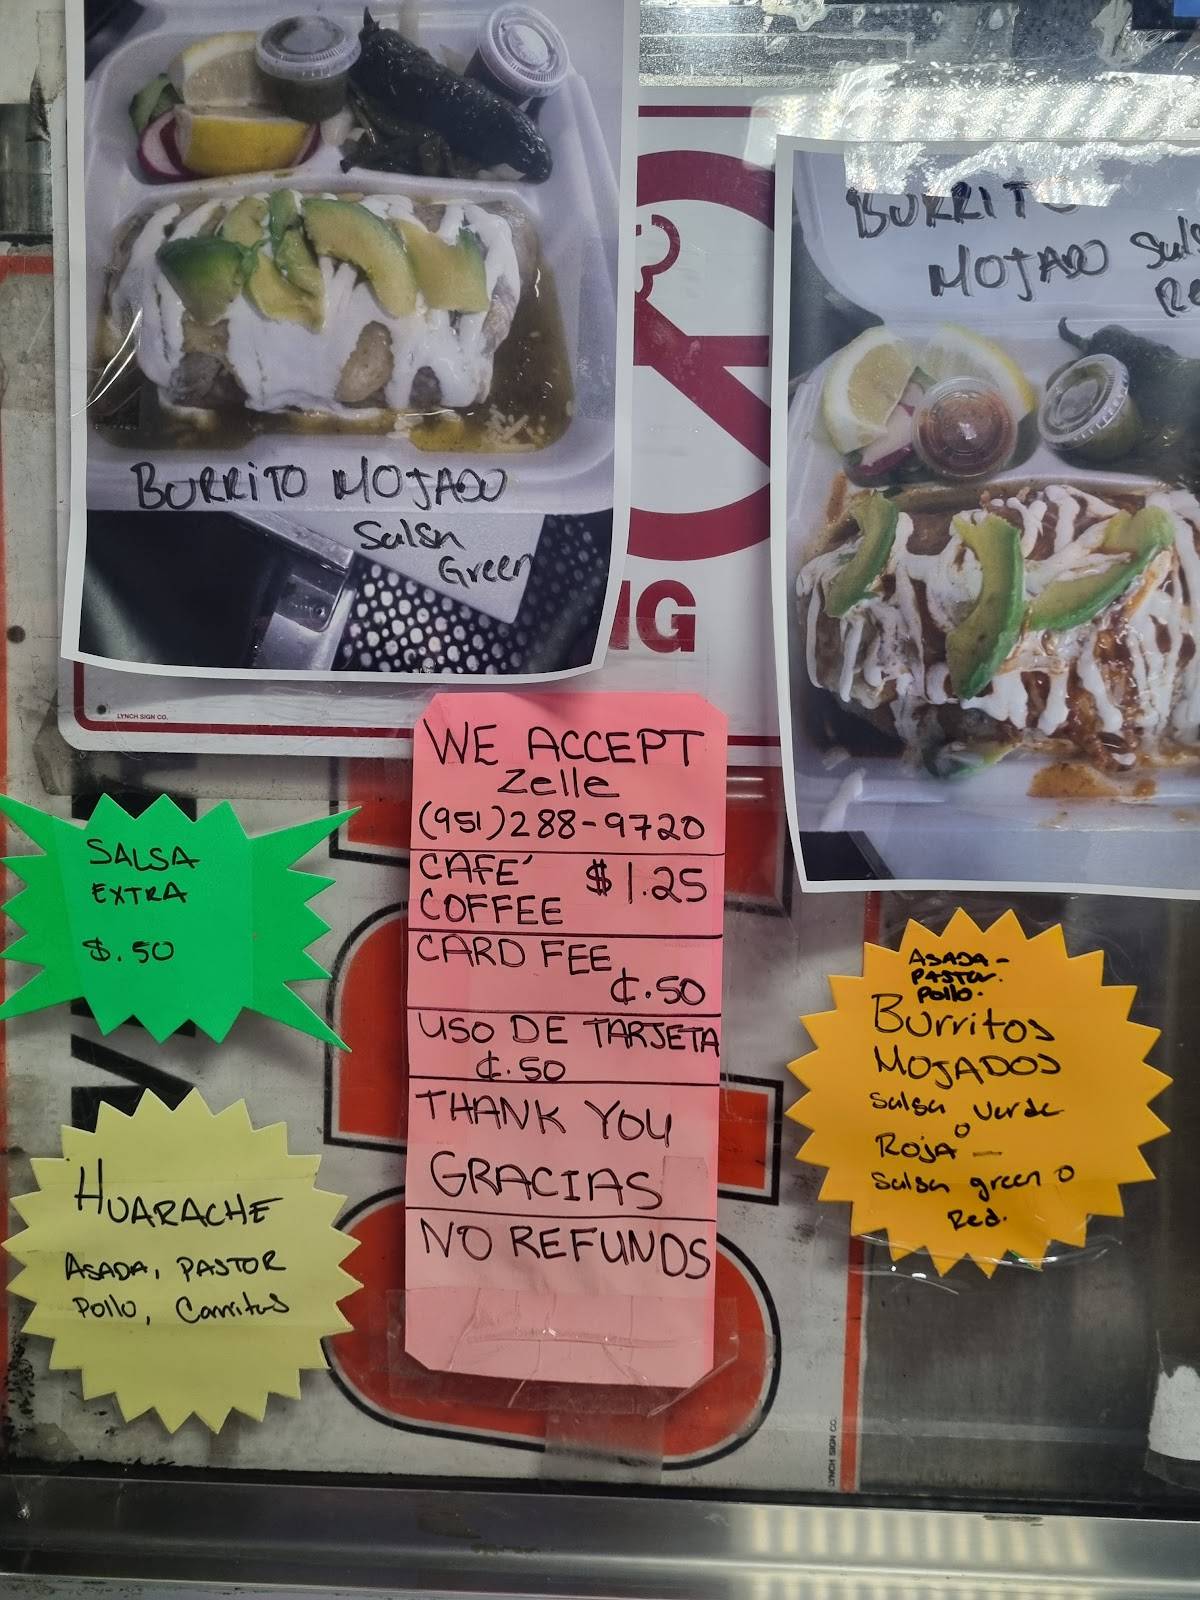 BURRITO MOJADO
Salsa
Green
BURRITO
MOJADO
NG
LYNCH SIGN CO.
WE ACCEPT
Zelle
(951)288-9720
CAFE´ $1.25
COFFEE
CARD FEE
¢.50
USO DE TARJETA
¢.50
THANK YOU
GRACIAS
NO REFUNDS
SALSA
EXTRA
$.50
HUARACHE
ASADA, PASTOR
Pollo, Carnitas
ASADA-
PASTOR.
Pollo.
Burritos
MOJADOS
Salsa verde
o
ROJA —
Salsa green o
Red.
LYNCH SIGN CO.